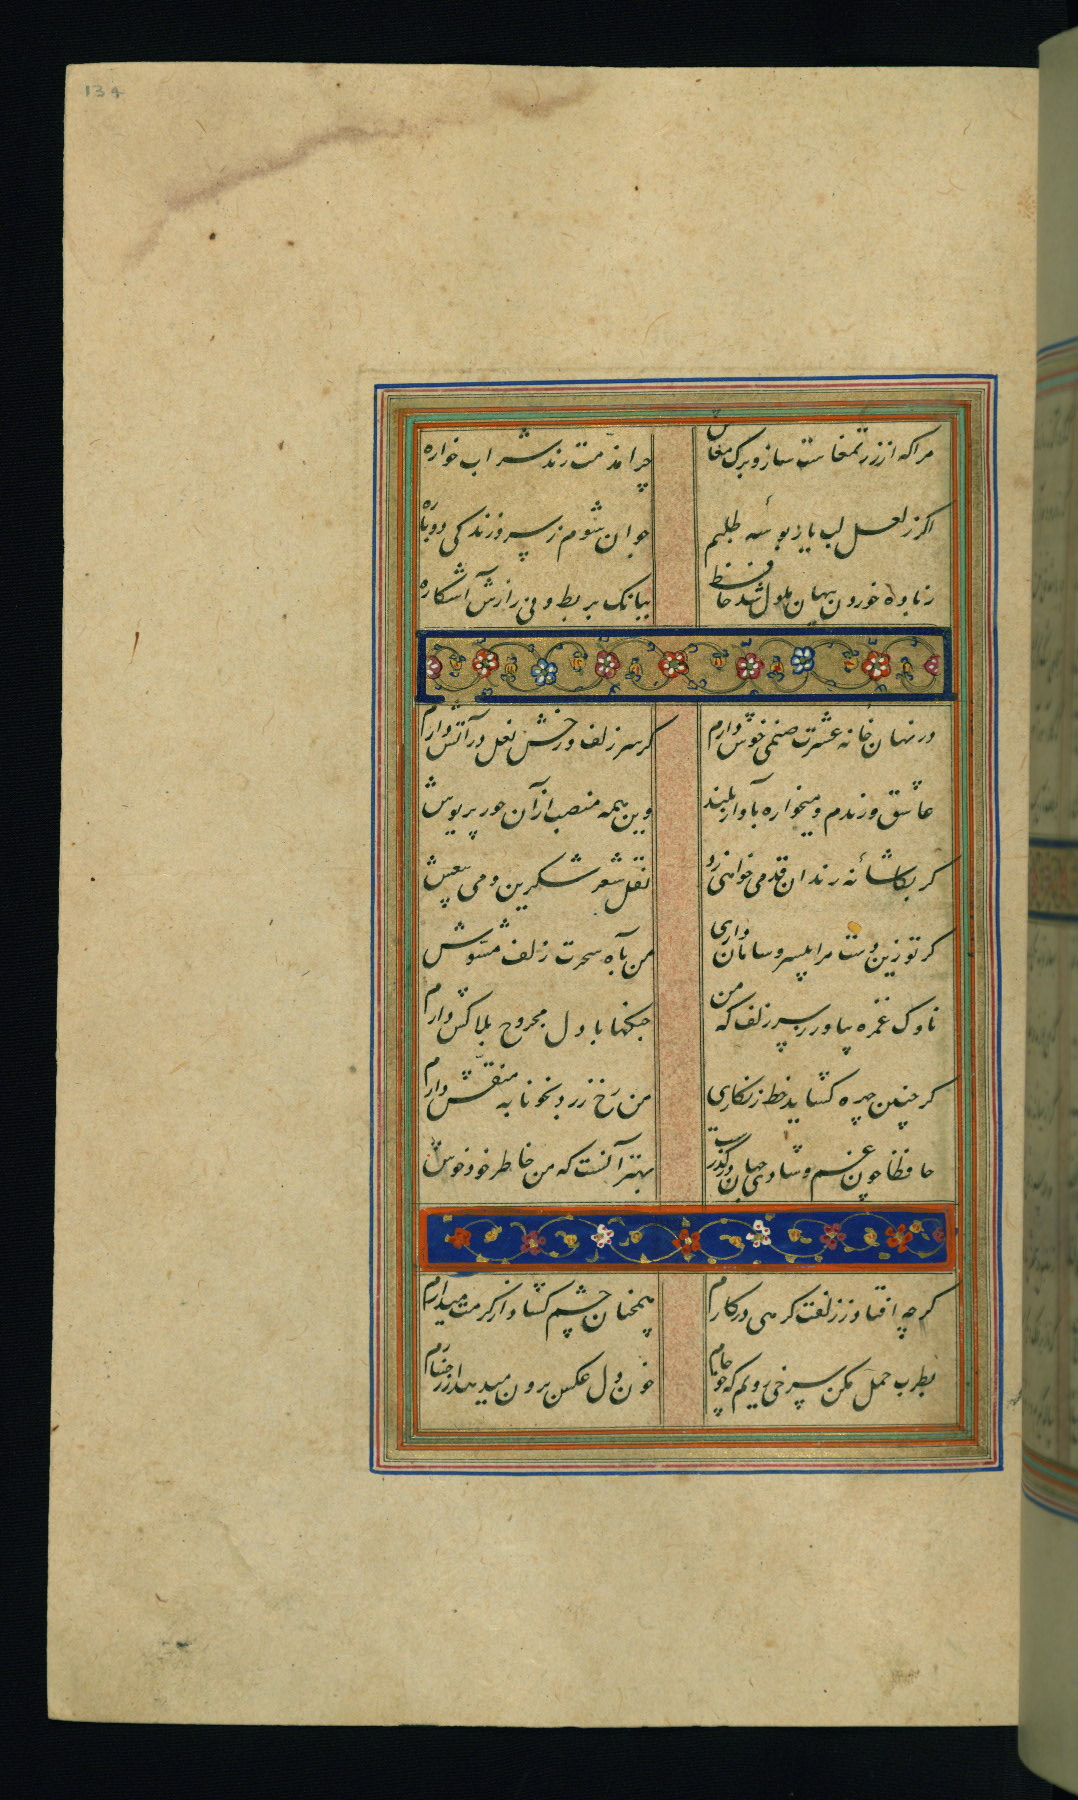 134
مرا که از زر تمغاست ساز و برک معاش
چرا مذمت رند شراب خواره
اکر ز لعل لب یار بوسۀ طلبم
جوان شوم ز سر و زندکی دوباره
ز باده خوردن پنهان ملول شد حافظ
ببانک بربط و نی رازش آشکاره
در نهان خانۀ عشرت صنمی خوش دارم
کز سر زلف و رخش نعل در آتش دارم
عاشق و رندم و میخواره بآواز بلند
وین همه منصب از آن حور پریوش
کر بکاشانۀ رندان قدمی خواهی زد
نقل شعر شکرین و می بیغش
کر تو زین دست مرا بیسر و سامان داری
من بآه سحرت زلف مشوش
ناوک غمزه بیاور رسن زلف که من
جنکها با دل مجروح بلاکش دارم
کر چنین چهره کشاید خط زنکاری
من رخ زرد بخونابه منقش دارم
حافظا چون غم و شادی جهان در کذرست
بهتر آنست که من خاطر خود خوش
کرچه افتاد ز زلفت کرهی در کارم
همچنان چشم کشاد از کرمت میدارم
بطرب حمل مکن سرخی رویم که چو جام
خون دل عکس برون میدهد از رخسارم